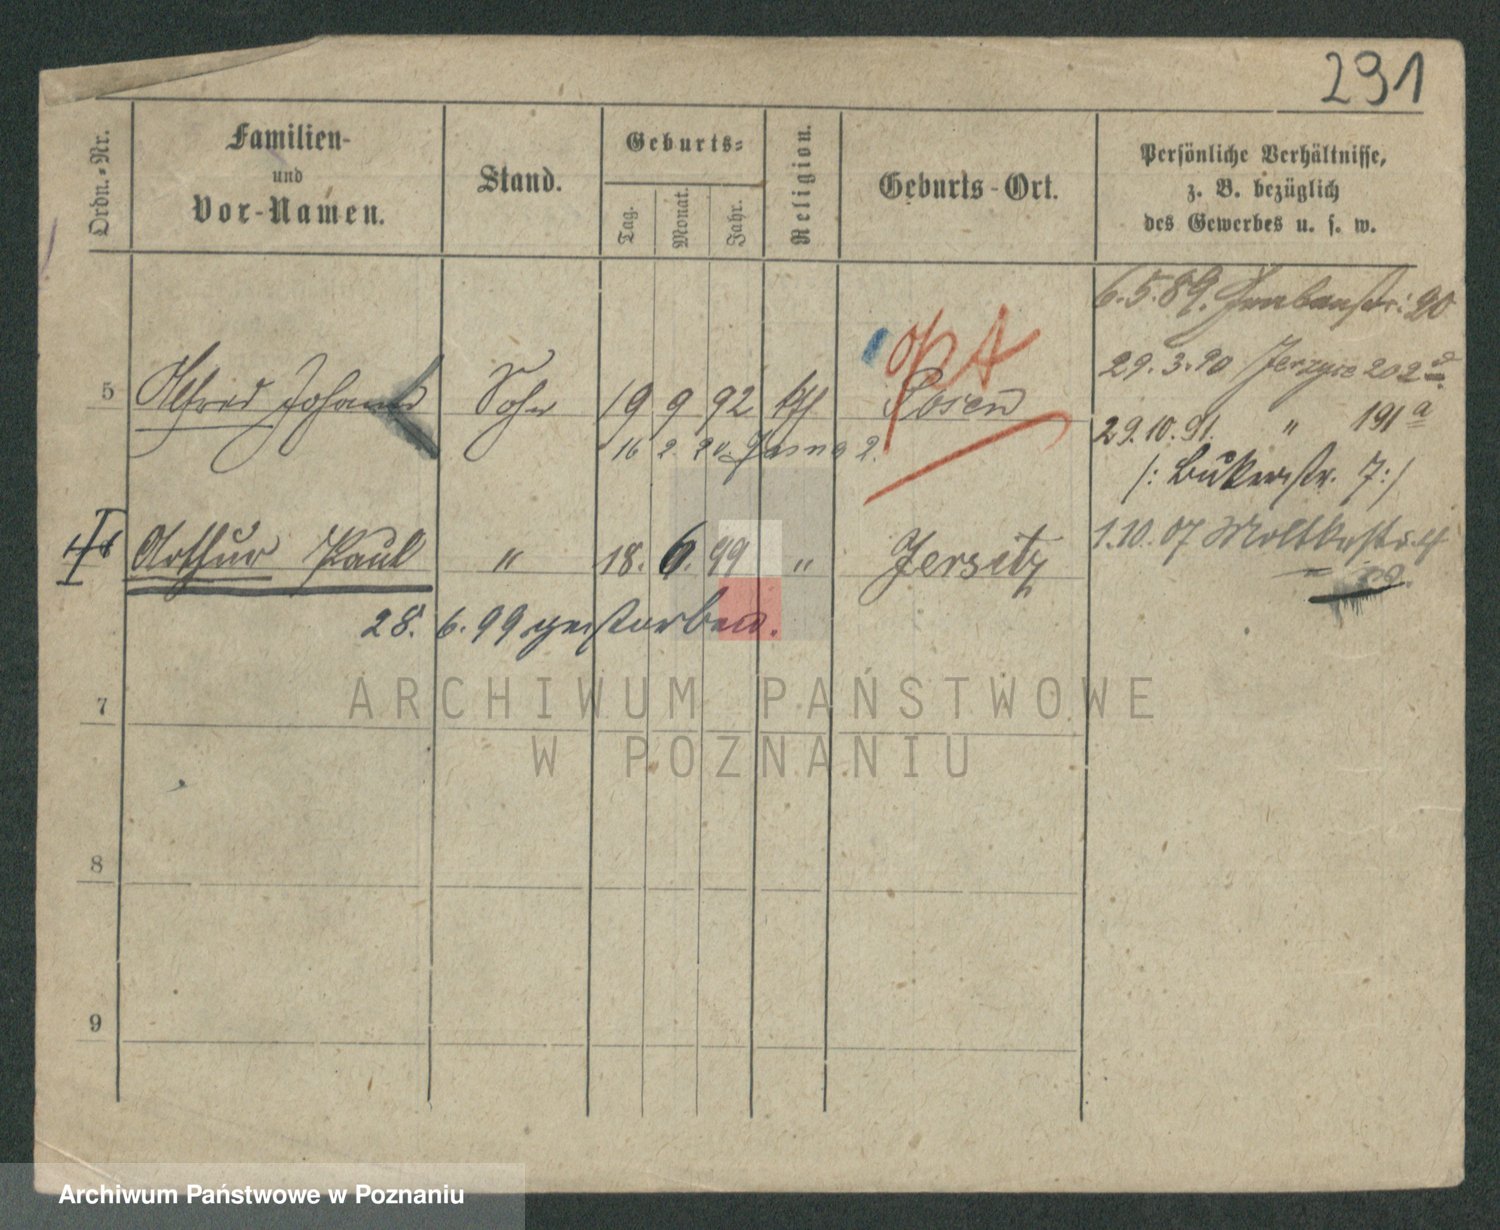 291
Ordn.-Nr.
Familien-
und
Vor-Namen.
Stand.
Geburts-
Tag.
Monat.
Jahr.
Religion.
Geburts-Ort.
Persönliche Verhältnisse,
z. B. bezüglich
des Gewerbes u. s. w.
6.5.89. 20
29.3.90 202
29.10.91. " 191 a
/: Bukerstr. 7:/
1.10.07
5 Alfred Johann Sohn 19 9 92 kth Posen
Opt
16 2. 20. Jasna 2.
Arthur Paul " 18. 6. 99 " Jersitz
28. 6. 99 gestorben.
7
8
9
ARCHIWUM PAŃSTWOWE
W POZNANIU
Archiwum Państwowe w Poznaniu